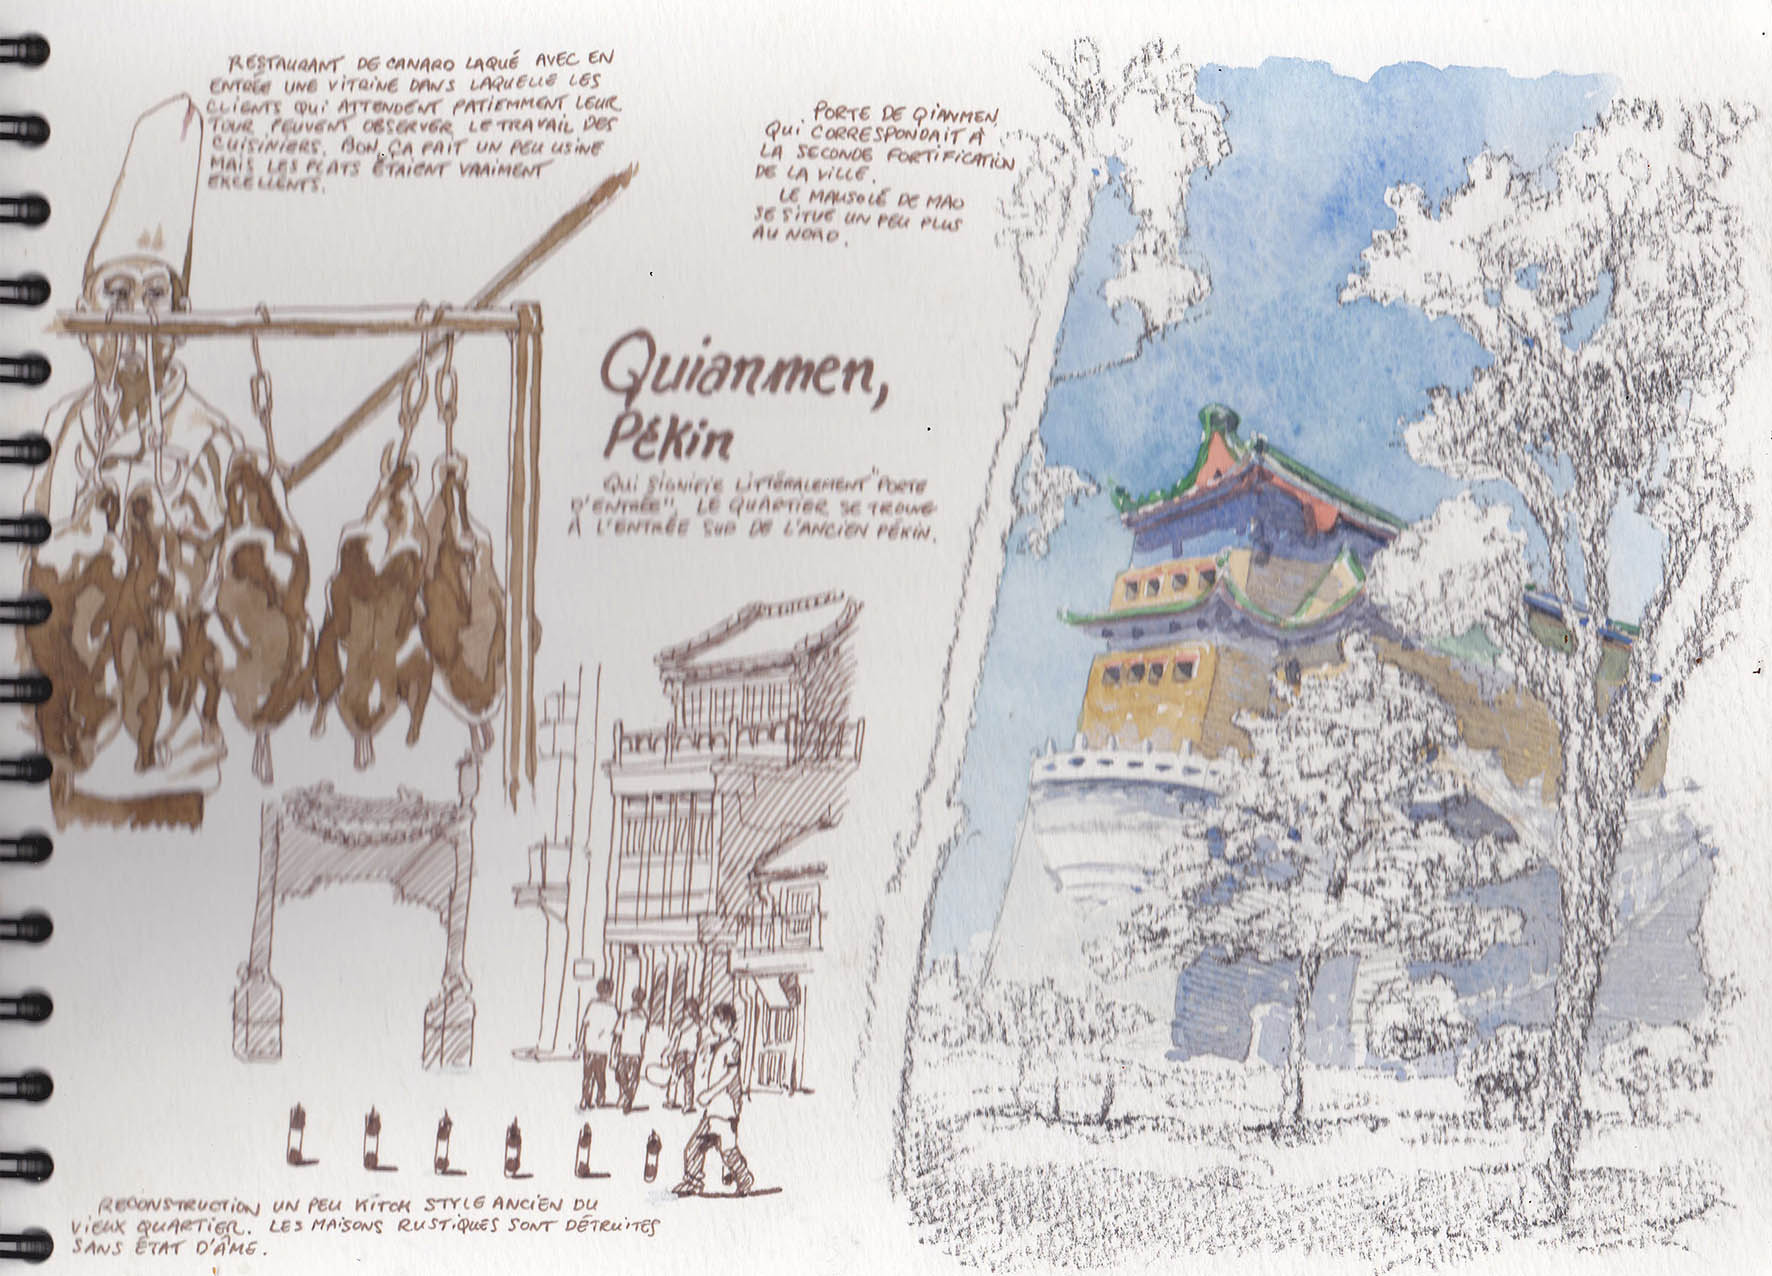 RESTAURANT DE CANARD LAQUÉ AVEC EN
ENTRÉE UNE VITRINE DANS LAQUELLE LES
CLIENTS QUI ATTENDENT PATIEMMENT LEUR
TOUR PEUVENT OBSERVER LE TRAVAIL DES
CUISINIERS. BON, ÇA FAIT UN PEU USINE
MAIS LES PLATS ÉTAIENT VRAIMENT
EXCELLENTS.
PORTE DE QIANMEN,
QUI CORRESPONDAIT À
LA SECONDE FORTIFICATION
DE LA VILLE.
LE MAUSOLÉ DE MAO
SE SITUE UN PEU PLUS
AU NORD.
Quianmen,
Pékin
QUI SIGNIFIE LITTÉRALEMENT "PORTE
D'ENTRÉE". LE QUARTIER SE TROUVE
À L'ENTRÉE SUD DE L'ANCIEN PÉKIN.
RECONSTRUCTION UN PEU KITCH STYLE ANCIEN DU
VIEUX QUARTIER. LES MAISONS RUSTIQUES SONT DÉTRUITES
SANS ÉTAT D'ÂME.